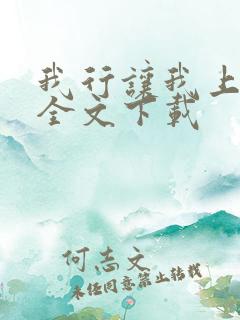 我行讓我上
全文下載
何志文
未经同意禁止转载